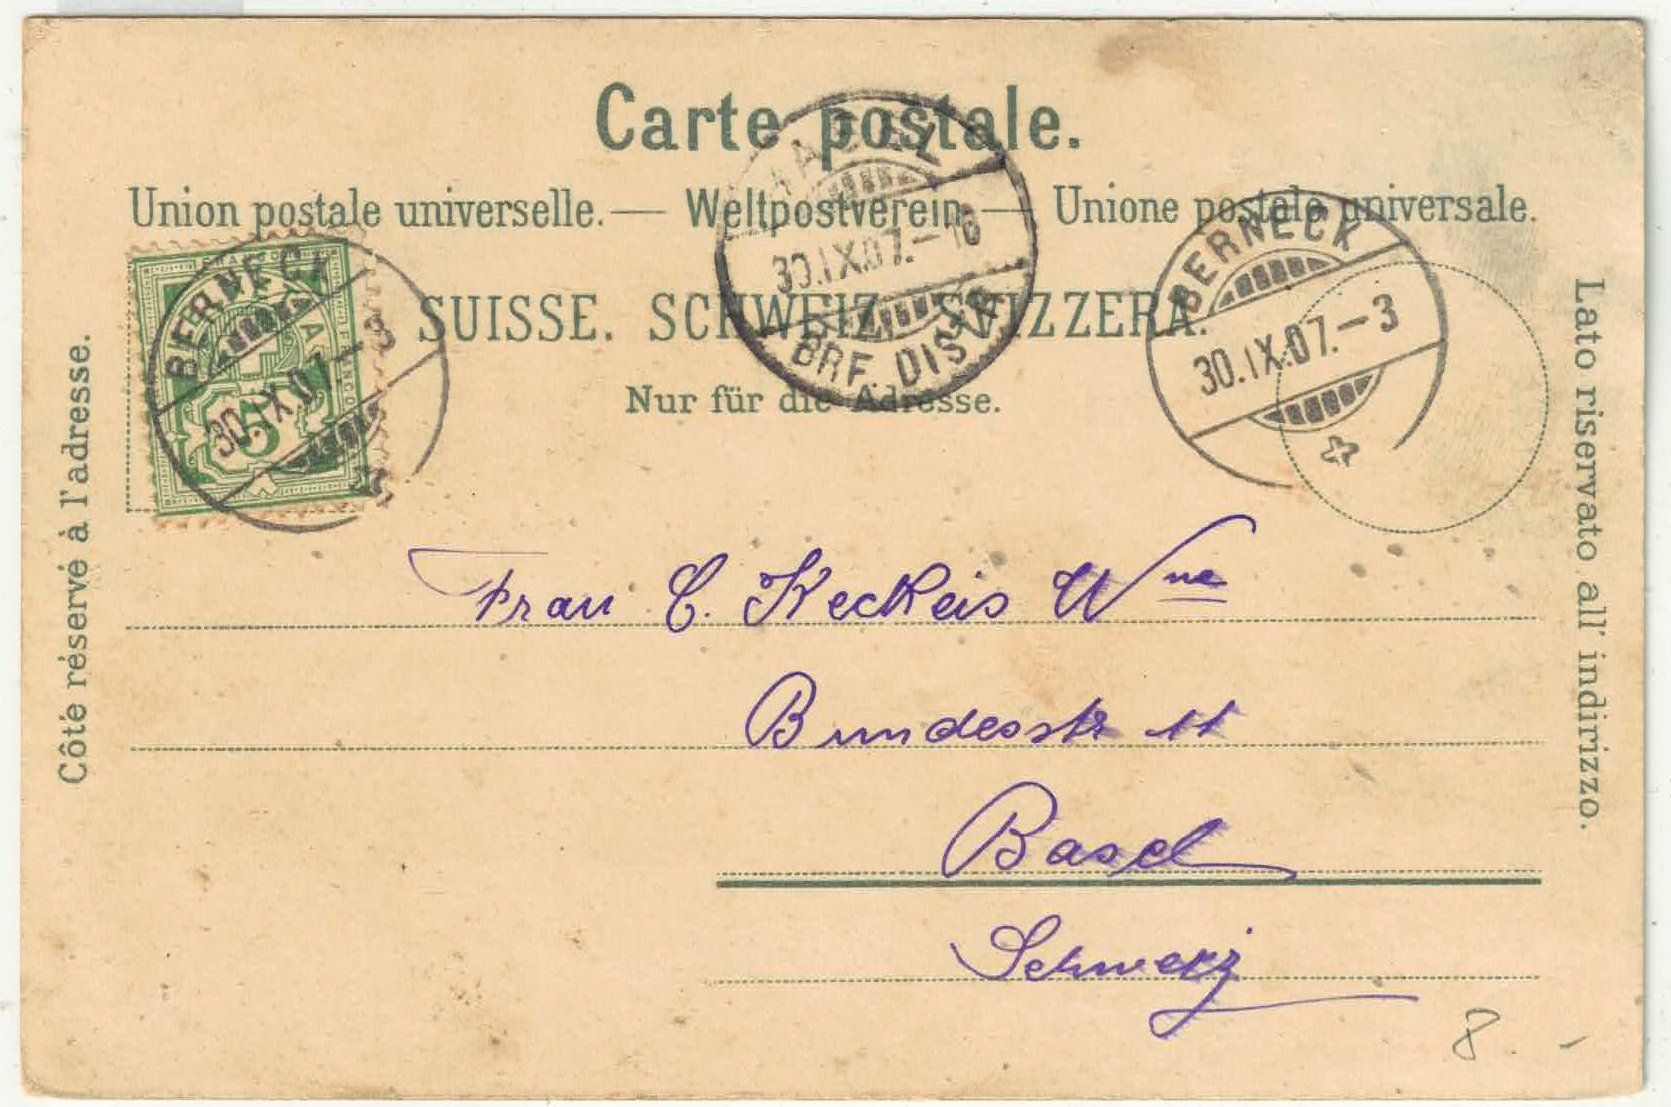 Carte postale.
Union postale universelle. — Weltpostverein. — Unione postale universale.
SUISSE. SCHWEIZ. SVIZZERA.
Nur für die Adresse.
Côté réservé à l'adresse.
Lato riservato all' indirizzo.
BERNECK
30.IX.07.–3
5
BASEL
30.IX.07.–16
BRF. DISTR.
BERNECK
30.IX.07.–3
Frau C. Keckeis Wwe
Bundesstr 11
Basel
Schweiz
8. -